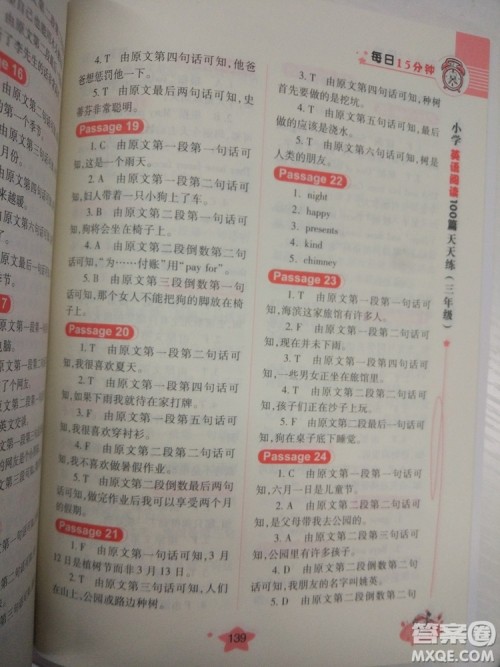 每日15分钟
小学英语阅读100篇天天练（三年级）
4. T 由原文第四句话可知，他爸
爸想惩罚他一下。
5. T 由原文最后两句话可知，史
蒂芬非常聪明。
Passage 19
1. C 由原文第一段第一句话可
知，这是一个雨天。
2. B 由原文第一段第二句话可
知，妇人带着一只小狗上了车。
3. A 由原文第二段第一句话可
知，狗将会坐在椅子上。
4. A 由原文第二段倒数第二句
话可知。“为……付账”用“pay for”。
5. B 由原文第三段倒数第二句
话可知，那个女人不能把狗的脚放在椅
子上。
Passage 20
1. T 由原文第一段第二句话可
知，我很喜欢夏天。
2. T 由原文第一段第四句话可
知，如果下雨我就待在家打牌。
3. F 由原文第一段第五句话可
知，我很喜欢穿衬衫。
4. F 由原文第二段第二句话可
知，我不喜欢做暑假作业。
5. T 由原文第二段倒数最后两句
话可知，做完作业后我可以享受两个月
的假期。
Passage 21
1. F 由原文第一句话可知，3 月
12 日是植树节而非 3 月 13 日。
2. T 由原文第三句话可知，人们
在山上、公园或路边种树。
3. T 由原文第四句话可知，种树
首先要做的是挖坑。
4. F 由原文第五句话可知，最后
做的应该是浇水。
5. T 由原文第六句话可知，树是
人类的朋友。
Passage 22
1. night
2. happy
3. presents
4. kind
5. chimney
Passage 23
1. T 由原文第一段第一句话可
知，海滨这家旅馆有许多人。
2. F 由原文第一段第二句话可
知，现在并未下雨。
3. T 由原文第一段第四句话可
知，一些男女正坐在旅馆里。
4. T 由原文第二段第一句话可
知，孩子们正在沙子上玩。
5. F 由原文第二段第二句话可
知，狗在桌子底下睡觉。
Passage 24
1. C 由原文第一段第一句话可
知，六月一日是儿童节。
2. B 由原文第二段第二句话可
知，是父母带我去公园的。
3. D 由原文第二段第三句话可
知，公园里有许多孩子。
4. A 由原文第二段倒数第三句话
可知，我朋友的名字叫姚英。
5. D 由原文第二段倒数第二句
139
答案圈
MXQE.COM